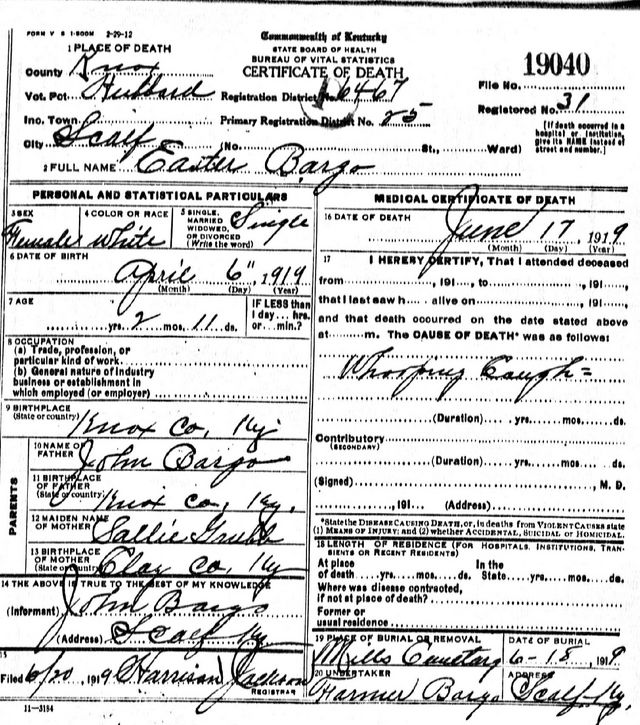 FORM V S 1-500M 2-29-12
Commonwealth of Kentucky
STATE BOARD OF HEALTH
BUREAU OF VITAL STATISTICS
CERTIFICATE OF DEATH
19040
1 PLACE OF DEATH
County Knox
Vot. Pct. Hubbard Registration District No. 6467 File No.
Inc. Town Primary Registration District No. 25 Registered No. 31
City Scalf (No. St., Ward)
[If death occurred in a hospital or institution, give its NAME instead of street and number.]
2 FULL NAME Easter Bargo
PERSONAL AND STATISTICAL PARTICULARS
3 SEX Female
4 COLOR OR RACE White
5 SINGLE, MARRIED WIDOWED, OR DIVORCED (Write the word) Single
6 DATE OF BIRTH
April 6", 1919
(Month) (Day) (Year)
7 AGE
yrs. 2 mos. 11 ds.
IF LESS than 1 day... hrs. or... min.?
8 OCCUPATION
(a) Trade, profession, or particular kind of work
(b) General nature of industry business or establishment in which employed (or employer)
9 BIRTHPLACE
(State or country) Knox Co, Ky.
PARENTS
10 NAME OF FATHER John Bargo
11 BIRTHPLACE OF FATHER (State or country) Knox Co, Ky.
12 MAIDEN NAME OF MOTHER Sallie Grubb
13 BIRTHPLACE OF MOTHER (State or country) Clay Co, Ky
14 THE ABOVE IS TRUE TO THE BEST OF MY KNOWLEDGE
(Informant) John Bargo
(Address) Scalf Ky
15
Filed 6/20, 1919 Harrison Jackson
REGISTRAR
11-3184
MEDICAL CERTIFICATE OF DEATH
16 DATE OF DEATH
June 17, 1919
(Month) (Day) (Year)
17 I HEREBY CERTIFY, That I attended deceased
from , 191 , to , 191 ,
that I last saw h alive on , 191 ,
and that death occurred on the date stated above
at m. The CAUSE OF DEATH* was as follows:
Whooping Cough =
(Duration) yrs. mos. ds.
Contributory
(SECONDARY)
(Duration) yrs. mos. ds.
(Signed) , M. D.
, 191 (Address)
*State the DISEASE CAUSING DEATH, or, in deaths from VIOLENT CAUSES state
(1) MEANS OF INJURY; and (2) whether ACCIDENTAL, SUICIDAL OR HOMICIDAL.
18 LENGTH OF RESIDENCE (FOR HOSPITALS, INSTITUTIONS, TRANSIENTS OR RECENT RESIDENTS)
At place of death yrs. mos. ds. In the State yrs. mos. ds.
Where was disease contracted,
if not at place of death?
Former or
usual residence
19 PLACE OF BURIAL OR REMOVAL
Mills Cemetary
DATE OF BURIAL
6-18, 1919
20 UNDERTAKER
Farmer Bargo
ADDRESS
Scalf Ky.